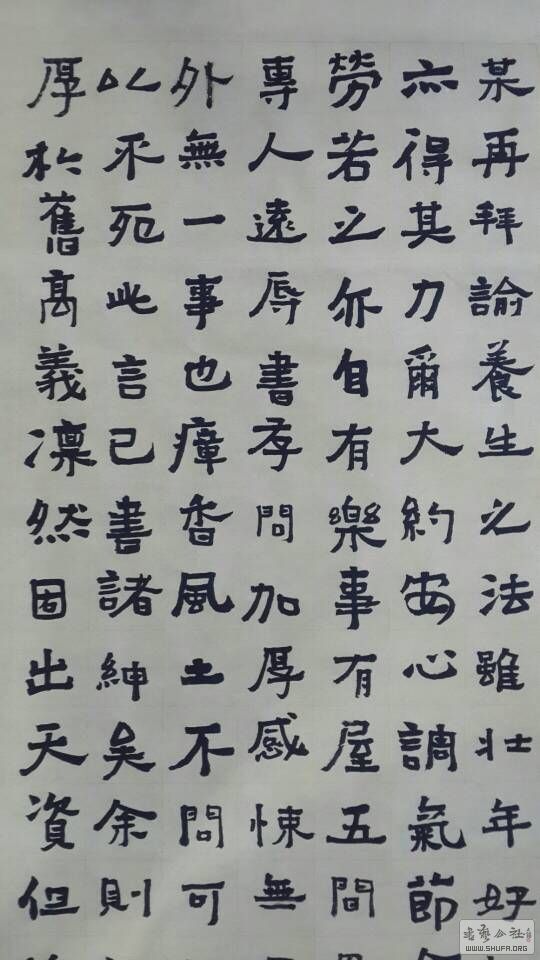 某再拜諭養生之法雖壯年好
亦得其力爾大約安心調氣節
勞若之亦自有樂事有屋五間
專人遠辱書存問加厚感悚無
外無一事也瘴香風土不問可
以不死此言已書諸紳吳余則
厚於舊高義凜然固出天資但
书艺公社
WWW.SHUFA.ORG